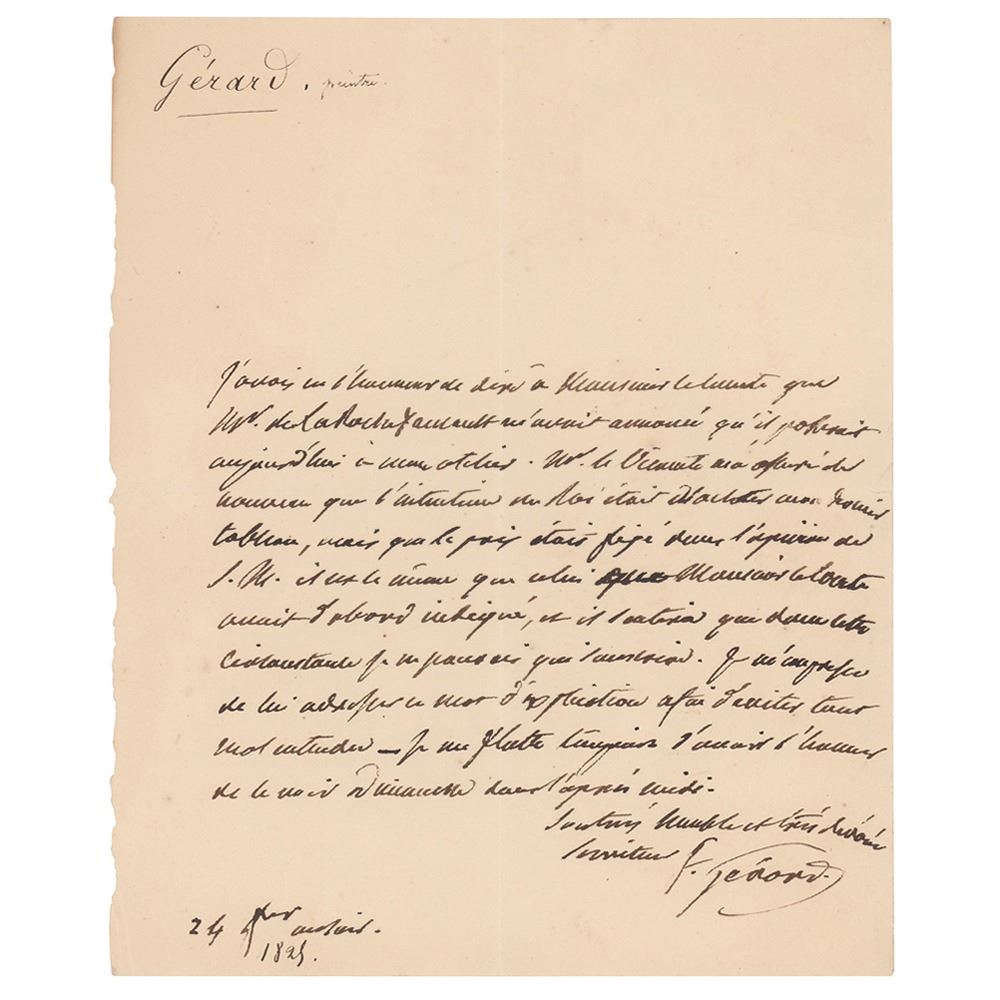 Gérard. peintre.
J'avais eu l'honneur de dire à Monsieur le Comte que
Mr. de LaRochefaucault m'avait annoncé qu'il passerait
aujourd'hui à mon atelier. Mr. le Vicomte m'a assuré de
nouveau que l'intention du Roi était d'acheter mon dernier
tableau, mais que le prix était fixé dans l'opinion de
S. M. il est le même que celui que Monsieur le Comte
avait d'abord indiqué, et il sentira que dans cette
circonstance je ne pouvais que souscrire. Je m'empresse
de lui adresser ce mot d'explication afin d'éviter tout
mal entendu — Je me flatte toujours d'avoir l'honneur
de le voir dimanche dans l'après midi.
Son très humble et très dévoué
serviteur F. Gérard.
24 au soir.
1825.